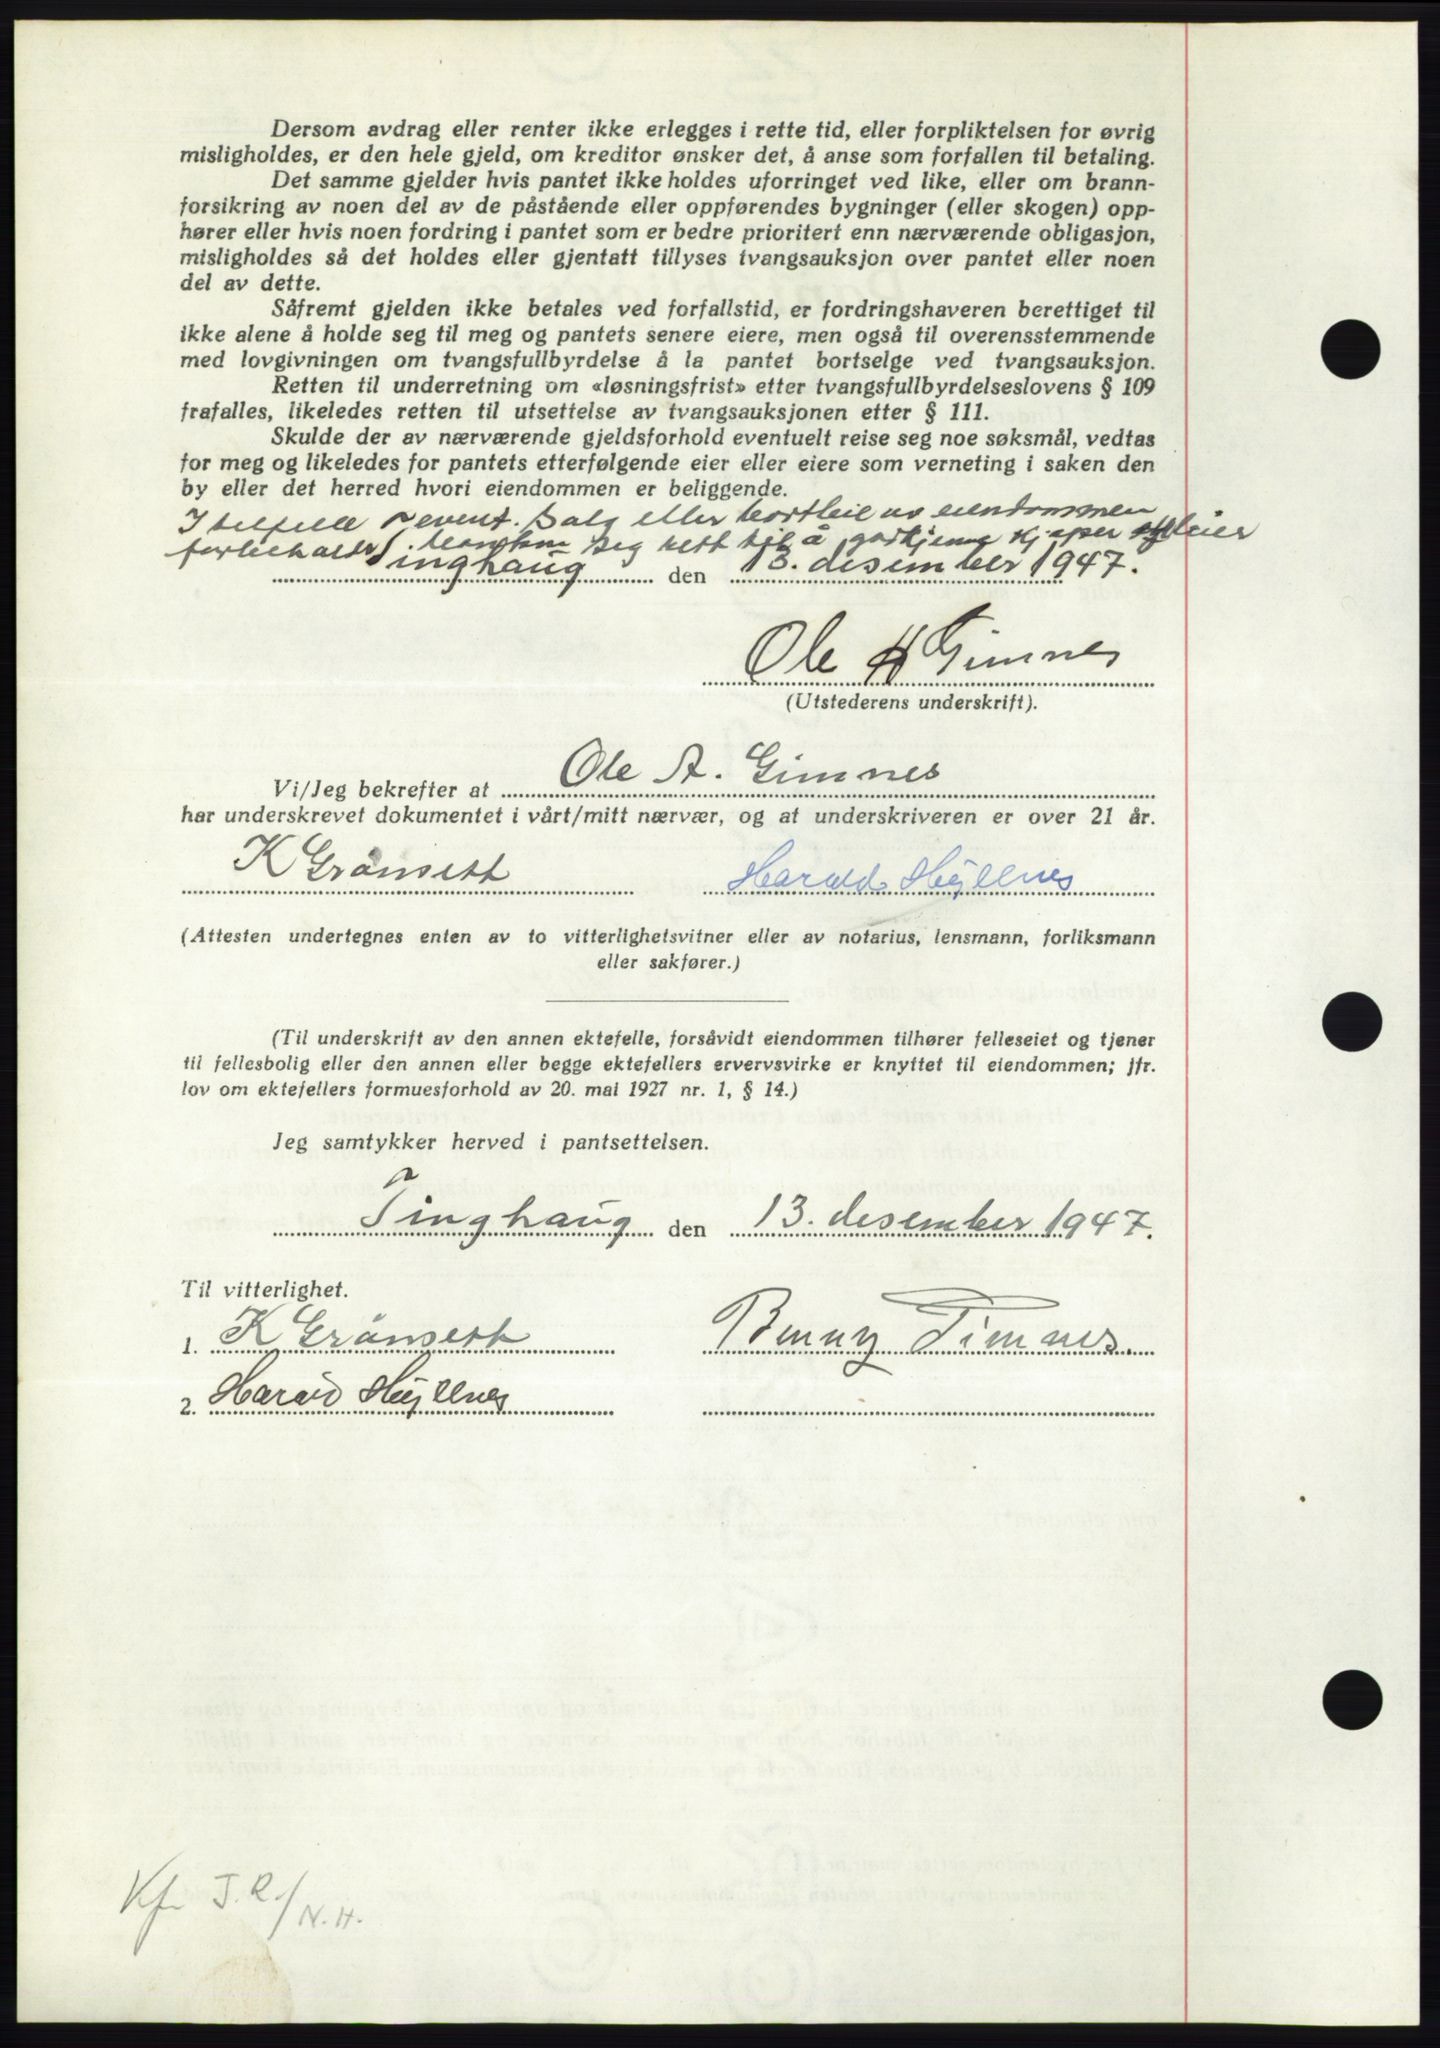 Dersom avdrag eller renter ikke erlegges i rette tid, eller forpliktelsen for øvrig
misligholdes, er den hele gjeld, om kreditor ønsker det, å anse som forfallen til betaling.
Det samme gjelder hvis pantet ikke holdes uforringet ved like, eller om brann-
forsikring av noen del av de påstående eller oppførendes bygninger (eller skogen) opp-
hører eller hvis noen fordring i pantet som er bedre prioritert enn nærværende obligasjon,
misligholdes så det holdes eller gjentatt tillyses tvangsauksjon over pantet eller noen
del av dette.
Såfremt gjelden ikke betales ved forfallstid, er fordringshaveren berettiget til
ikke alene å holde seg til meg og pantets senere eiere, men også til overensstemmende
med lovgivningen om tvangsfullbyrdelse å la pantet bortselge ved tvangsauksjon.
Retten til underretning om «løsningsfrist» etter tvangsfullbyrdelseslovens § 109
frafalles, likeledes retten til utsettelse av tvangsauksjonen etter § 111.
Skulde der av nærværende gjeldsforhold eventuelt reise seg noe søksmål, vedtas
for meg og likeledes for pantets etterfølgende eier eller eiere som verneting i saken den
by eller det herred hvori eiendommen er beliggende.
I tilfelle event. salg eller bortleie av eiendommen
forbeholder banken seg rett til å godkjenne kjøper leier
Tinghaug den 13. desember 1947.
Ole A Gimnes
(Utstederens underskrift).
Vi/Jeg bekrefter at Ole A. Gimnes
har underskrevet dokumentet i vårt/mitt nærvær, og at underskriveren er over 21 år.
K Grånsett Harald Høyllnes
(Attesten undertegnes enten av to vitterlighetsvitner eller av notarius, lensmann, forliksmann
eller sakfører.)
(Til underskrift av den annen ektefelle, forsåvidt eiendommen tilhører felleseiet og tjener
til fellesbolig eller den annen eller begge ektefellers ervervsvirke er knyttet til eiendommen; jfr.
lov om ektefellers formuesforhold av 20. mai 1927 nr. 1, § 14.)
Jeg samtykker herved i pantsettelsen.
Tinghaug den 13. desember 1947.
Til vitterlighet.
1. K Grånsett Benny Gimnes.
2. Harald Høyllnes
Kf. J.R./N.H.